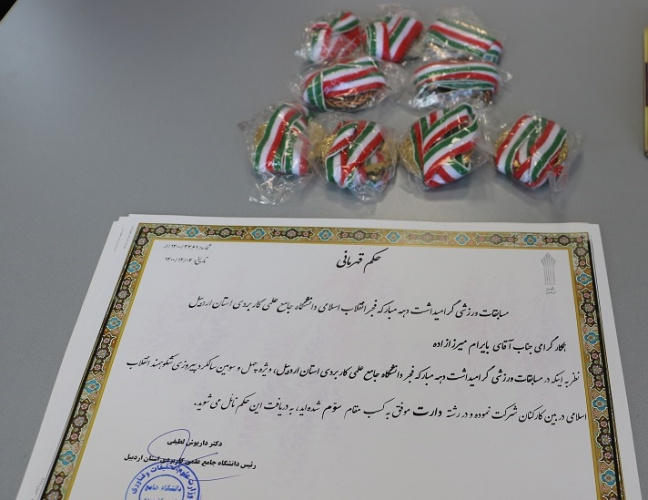 حکم قهرمانی
شماره: ۱۴۰۰/۳۳۶۹/د
تاریخ: ۱۴۰۰/۱۲/۰۴
مسابقات ورزشی گرامیداشت دهه مبارکه فجر انقلاب اسلامی دانشگاه جامع علمی کاربردی استان اردبیل
همکار گرامی جناب آقای بایرام میرزازاده
نظر به اینکه در مسابقات ورزشی گرامیداشت دهه مبارکه فجر دانشگاه جامع علمی کاربردی استان اردبیل، ویژه چهل و سومین سالگرد پیروزی شکوهمند انقلاب
اسلامی در بین کارکنان شرکت نموده و در رشته دارت موفق به کسب مقام سوّم شده اید، به دریافت این حکم نائل می شوید.
دکتر داریوش لطیفی
رئیس دانشگاه جامع علمی کاربردی استان اردبیل
وزارت علوم تحقیقات و فناوری
دانشگاه جامع